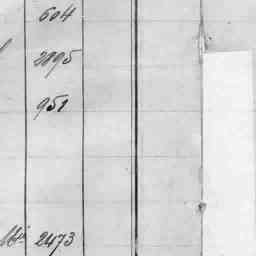 604
2895
951
2473